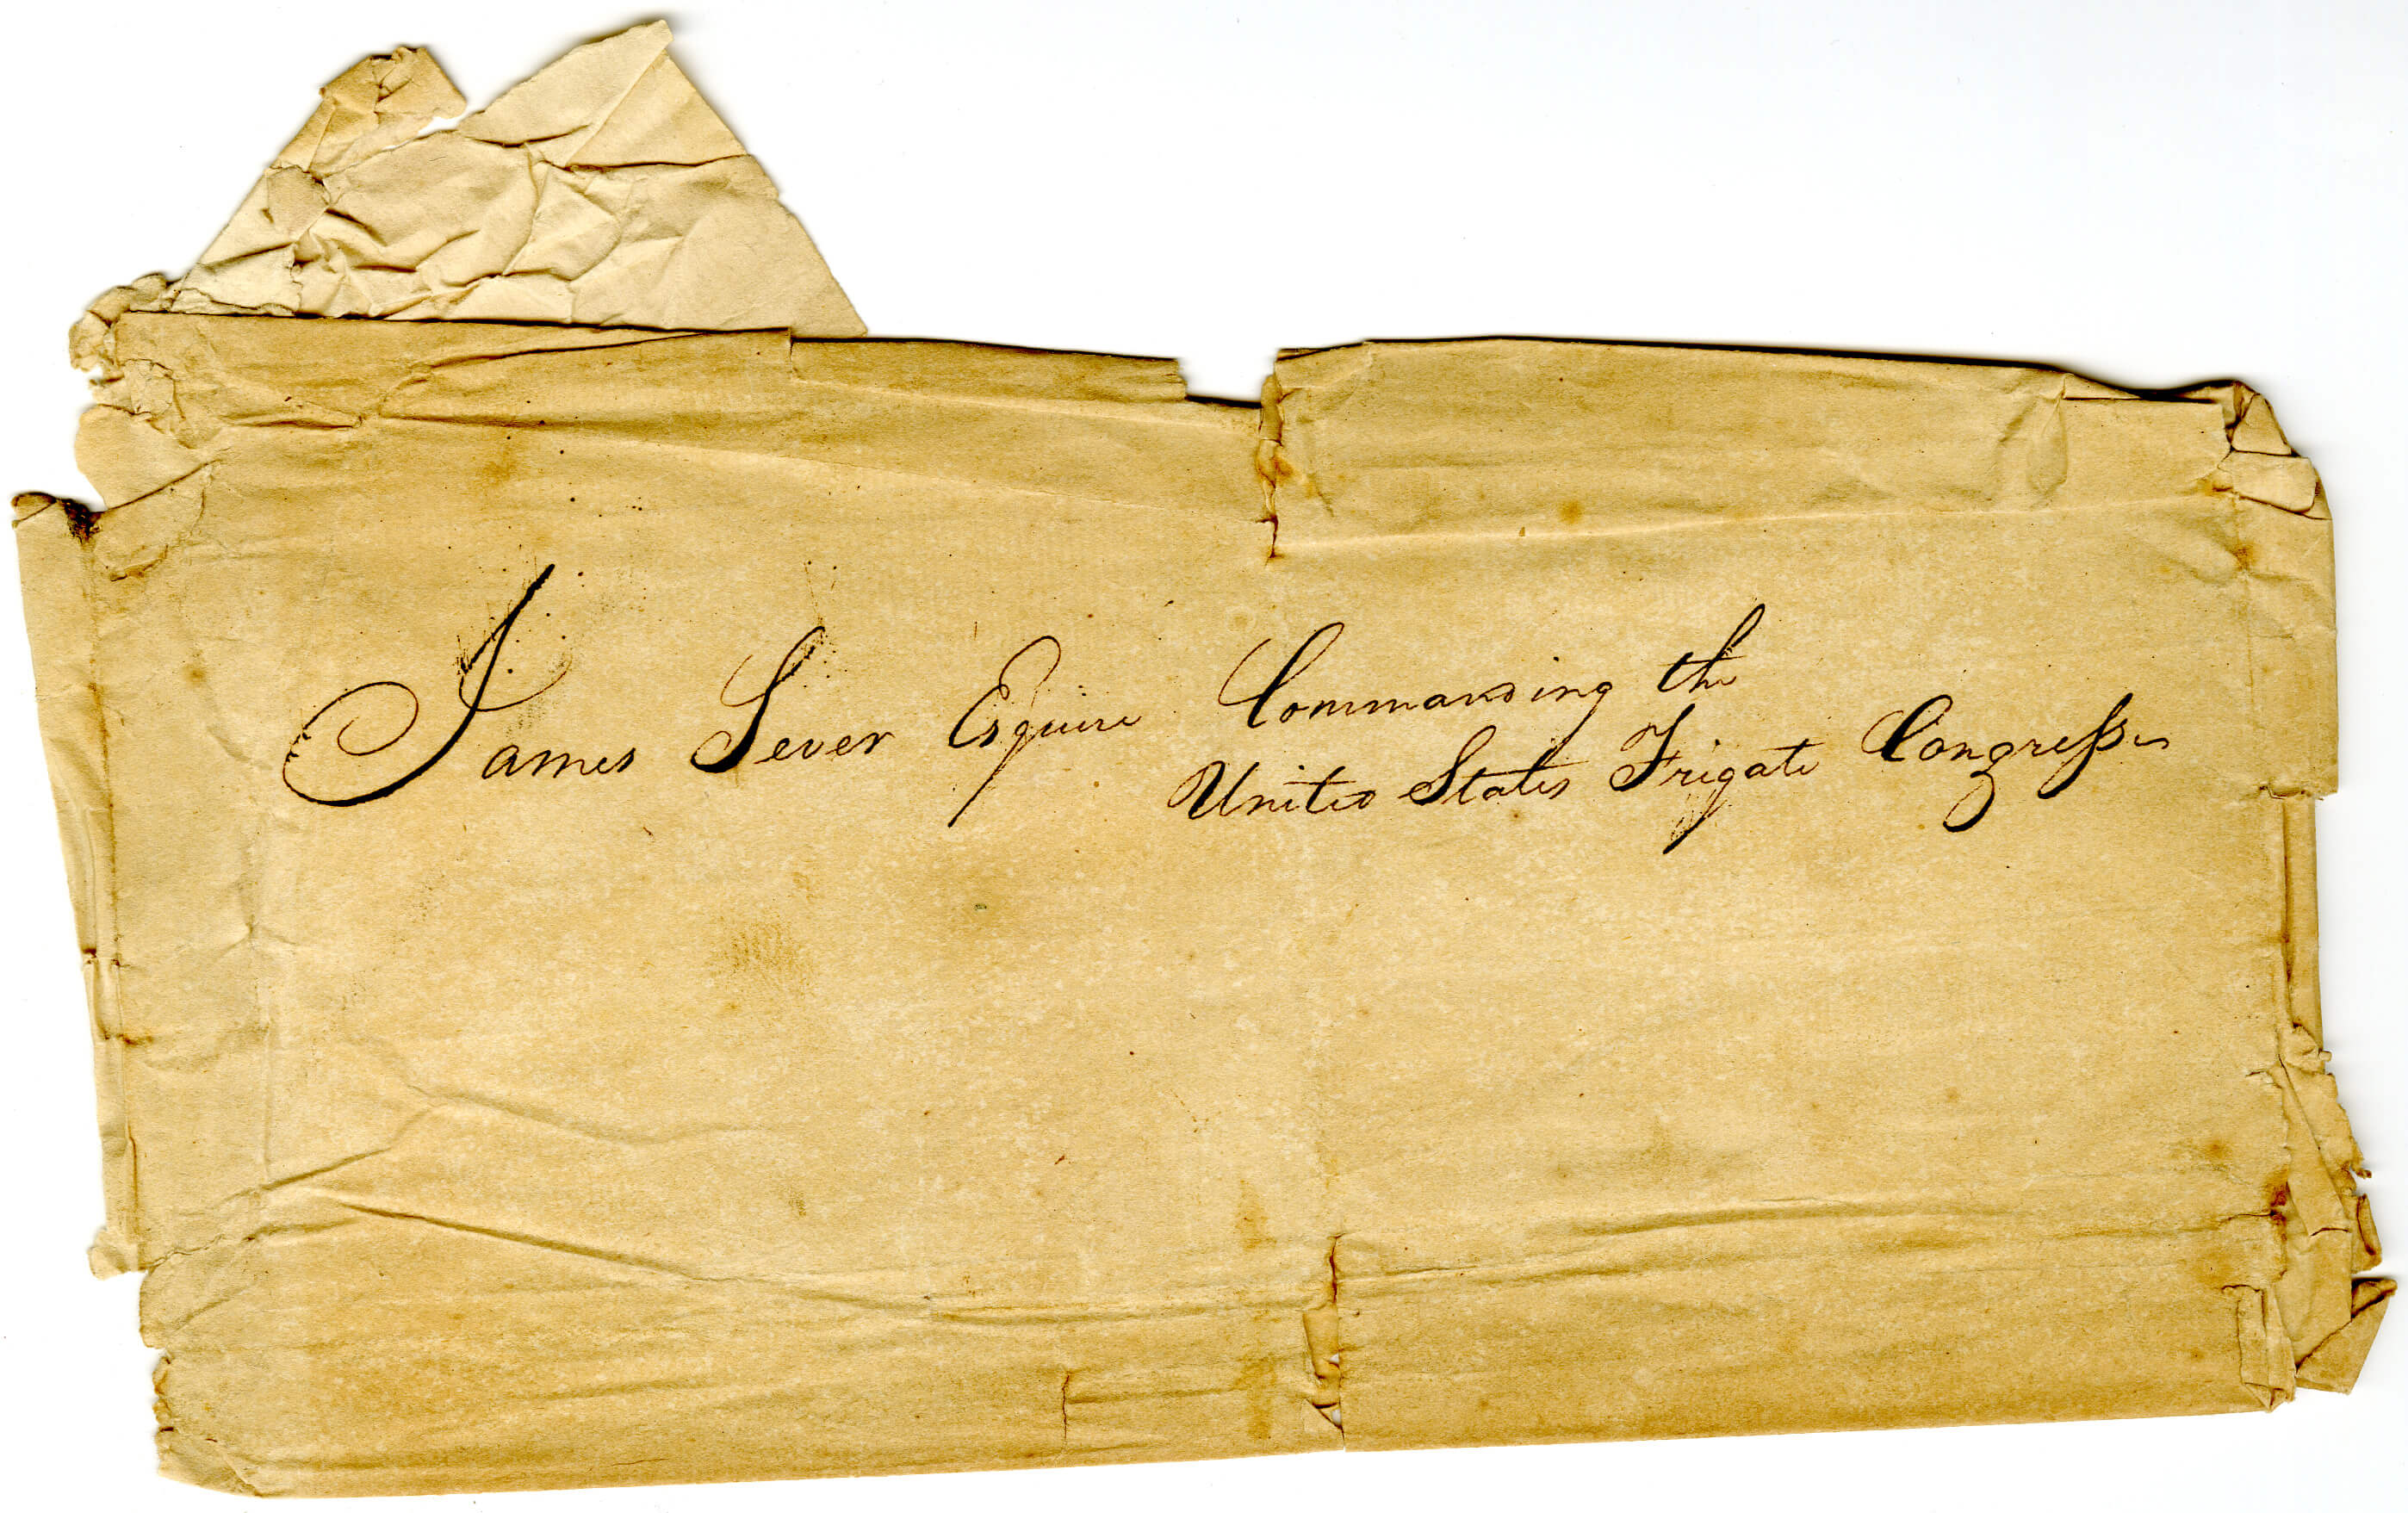 James Sever Esquire Commanding the
United States Frigate Congress